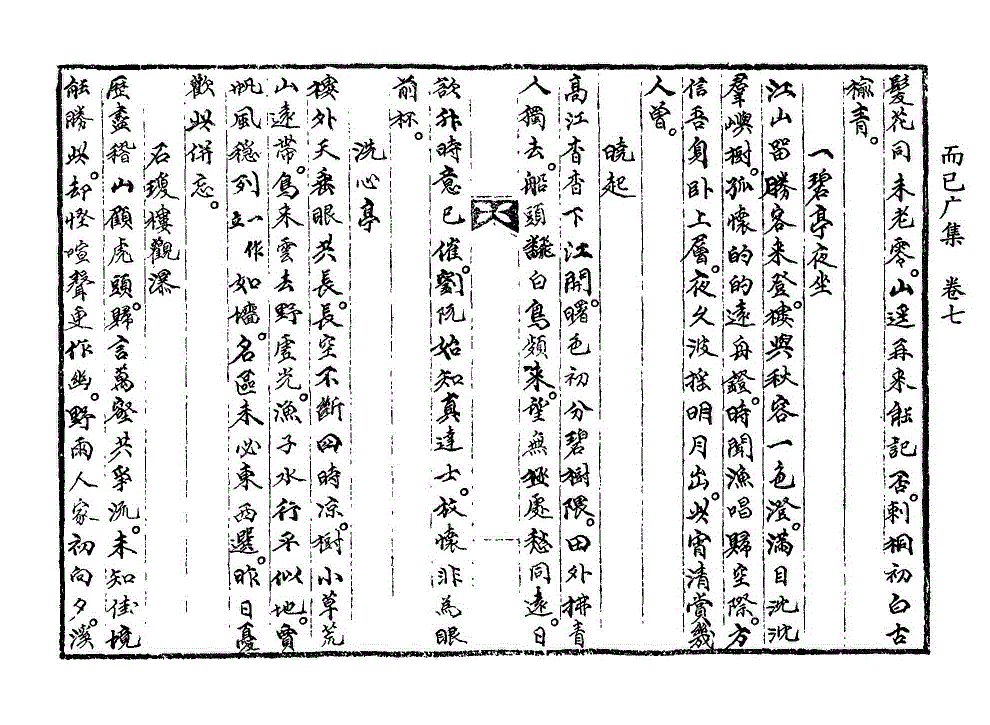 而已广集 卷七
髮花同未老零。山遥再来能記否。刺桐初白古
榆青。
一碧亭夜坐
江山留勝客来登。樓與秋容一色澄。滿目沈沈
羣嶼樹。孤懷的的遠舟燈。時聞漁唱歸空際。方
信吾身卧上層。夜久波摇明月出。此宵清賞幾
人曾。
曉起
高江杳杳下江開。曙色初分碧樹隈。田外拂青
人獨去。船頭翻白鳥頻来。望無極處愁同遠。日
欲升時意已催。劉阮始知真達士。放懷非為眼
前杯。
洗心亭
樓外天垂眼共長。長空不斷四時凉。樹小草荒
山遠帶。鳥来雲去野虚光。漁子水行平似地。賈
帆風穏列一作立如墻。名區未必東西選。昨日憂
歡此併忘。
石瓊樓觀瀑
歷盡稽山顧虎頭。歸言萬壑共爭流。未知佳境
能勝此。却怪喧聲更作幽。野雨人家初向夕。溪